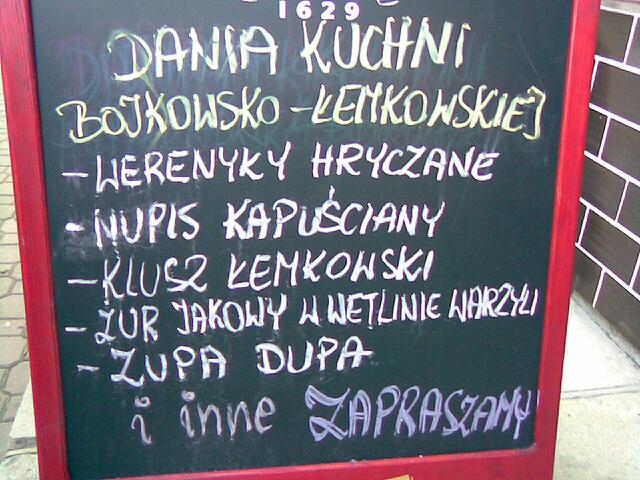 1629
DANIA KUCHNI
BOJKOWSKO-ŁEMKOWSKIEJ
-WERENYKY HRYCZANE
-NUPIS KAPUŚCIANY
-KLUSZ ŁEMKOWSKI
-ŻUR JAKOWY W WETLINIE WARZYLI
-ZUPA DUPA
i inne ZAPRASZAMY